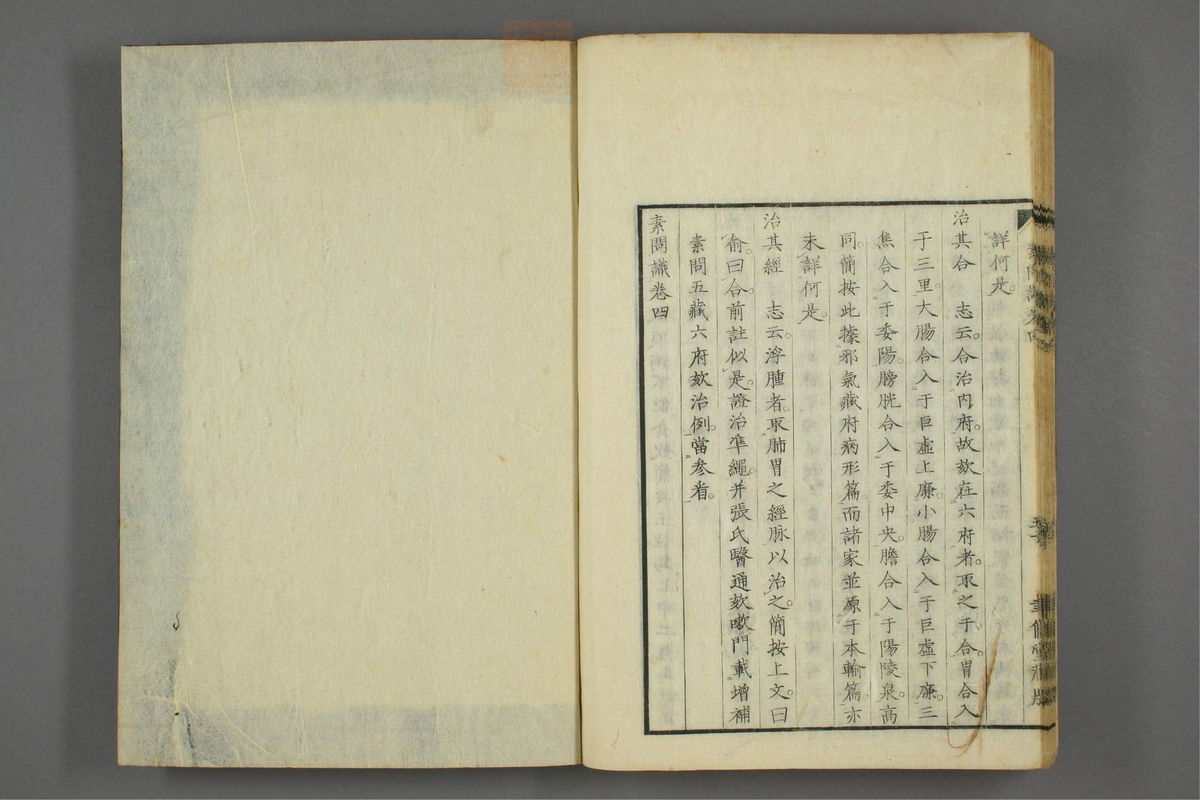 詳何是。
治其合　志云。合治内府。故欬在六府者。取之于合。胃合入
于三里。大腸合入于巨虛上廉。小腸合入于巨虛下廉。三
焦合入于委陽。膀胱合入于委中央。膽合入于陽陵泉。高
同。簡按此據邪氣藏府病形篇。而諸家並原于本輸篇。亦
未詳何是。
治其經　志云。浮腫者。取肺胃之經脉以治之。簡按上文。曰
俞。曰合。前註似是。證治準繩。并張氏醫通欬嗽門。載增補
素問五藏六府欬治例。當參看。
素問識卷四